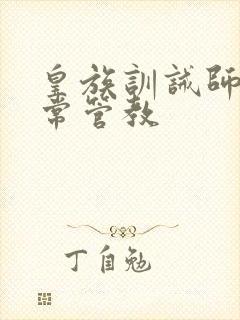 皇族訓誡師
常管教
丁自勉